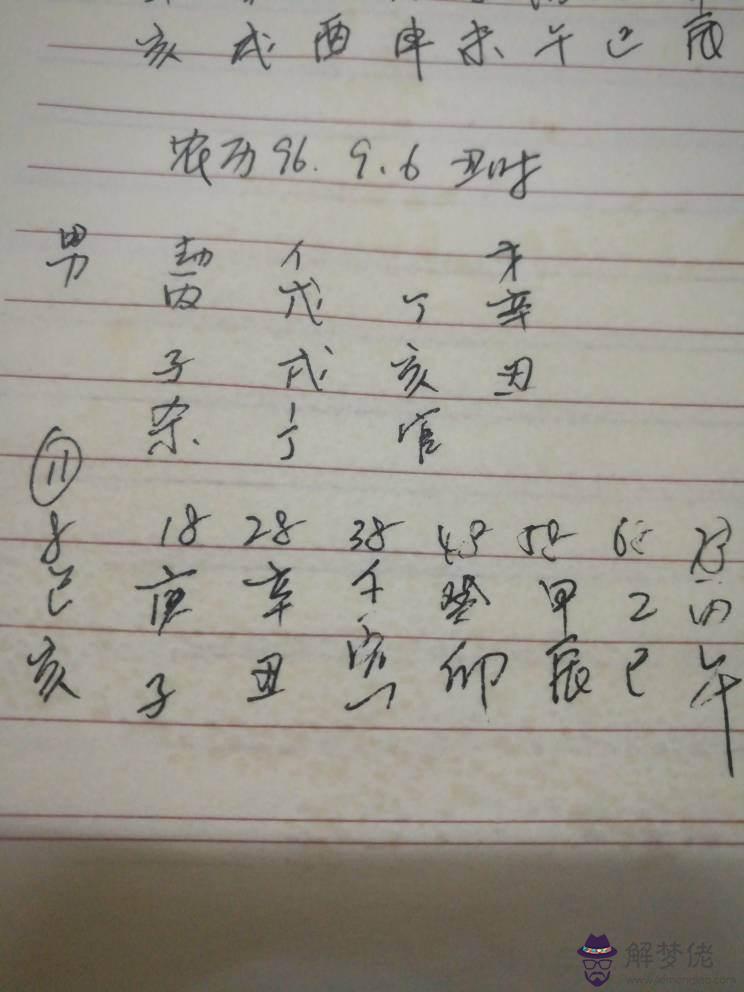 亥 戌 酉 申 未 午 巳 辰
农历 96. 9. 6 丑时
男 劫 亻 才
丙 戊 丁 辛
子 戌 亥 丑
杀 丁 官
11
8 18 28 38 48 58 68
己 庚 辛 壬 癸 甲 乙 丙
亥 子 丑 寅 卯 辰 巳 午
解梦佬